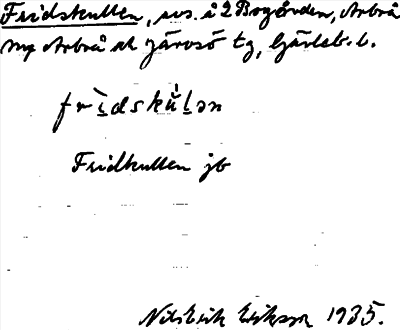 Fridskullen, avs. å 2 Bergården, Arbrå
sn, Arbrå ok Järvsö tg, Gävleb. l.
frìdskùlən
Fridkullen jb
Nils Erik Eriksson 1935.